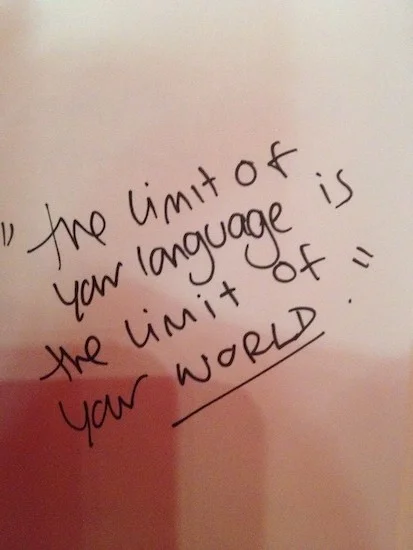 "the limit of
your language is
the limit of
your WORLD."